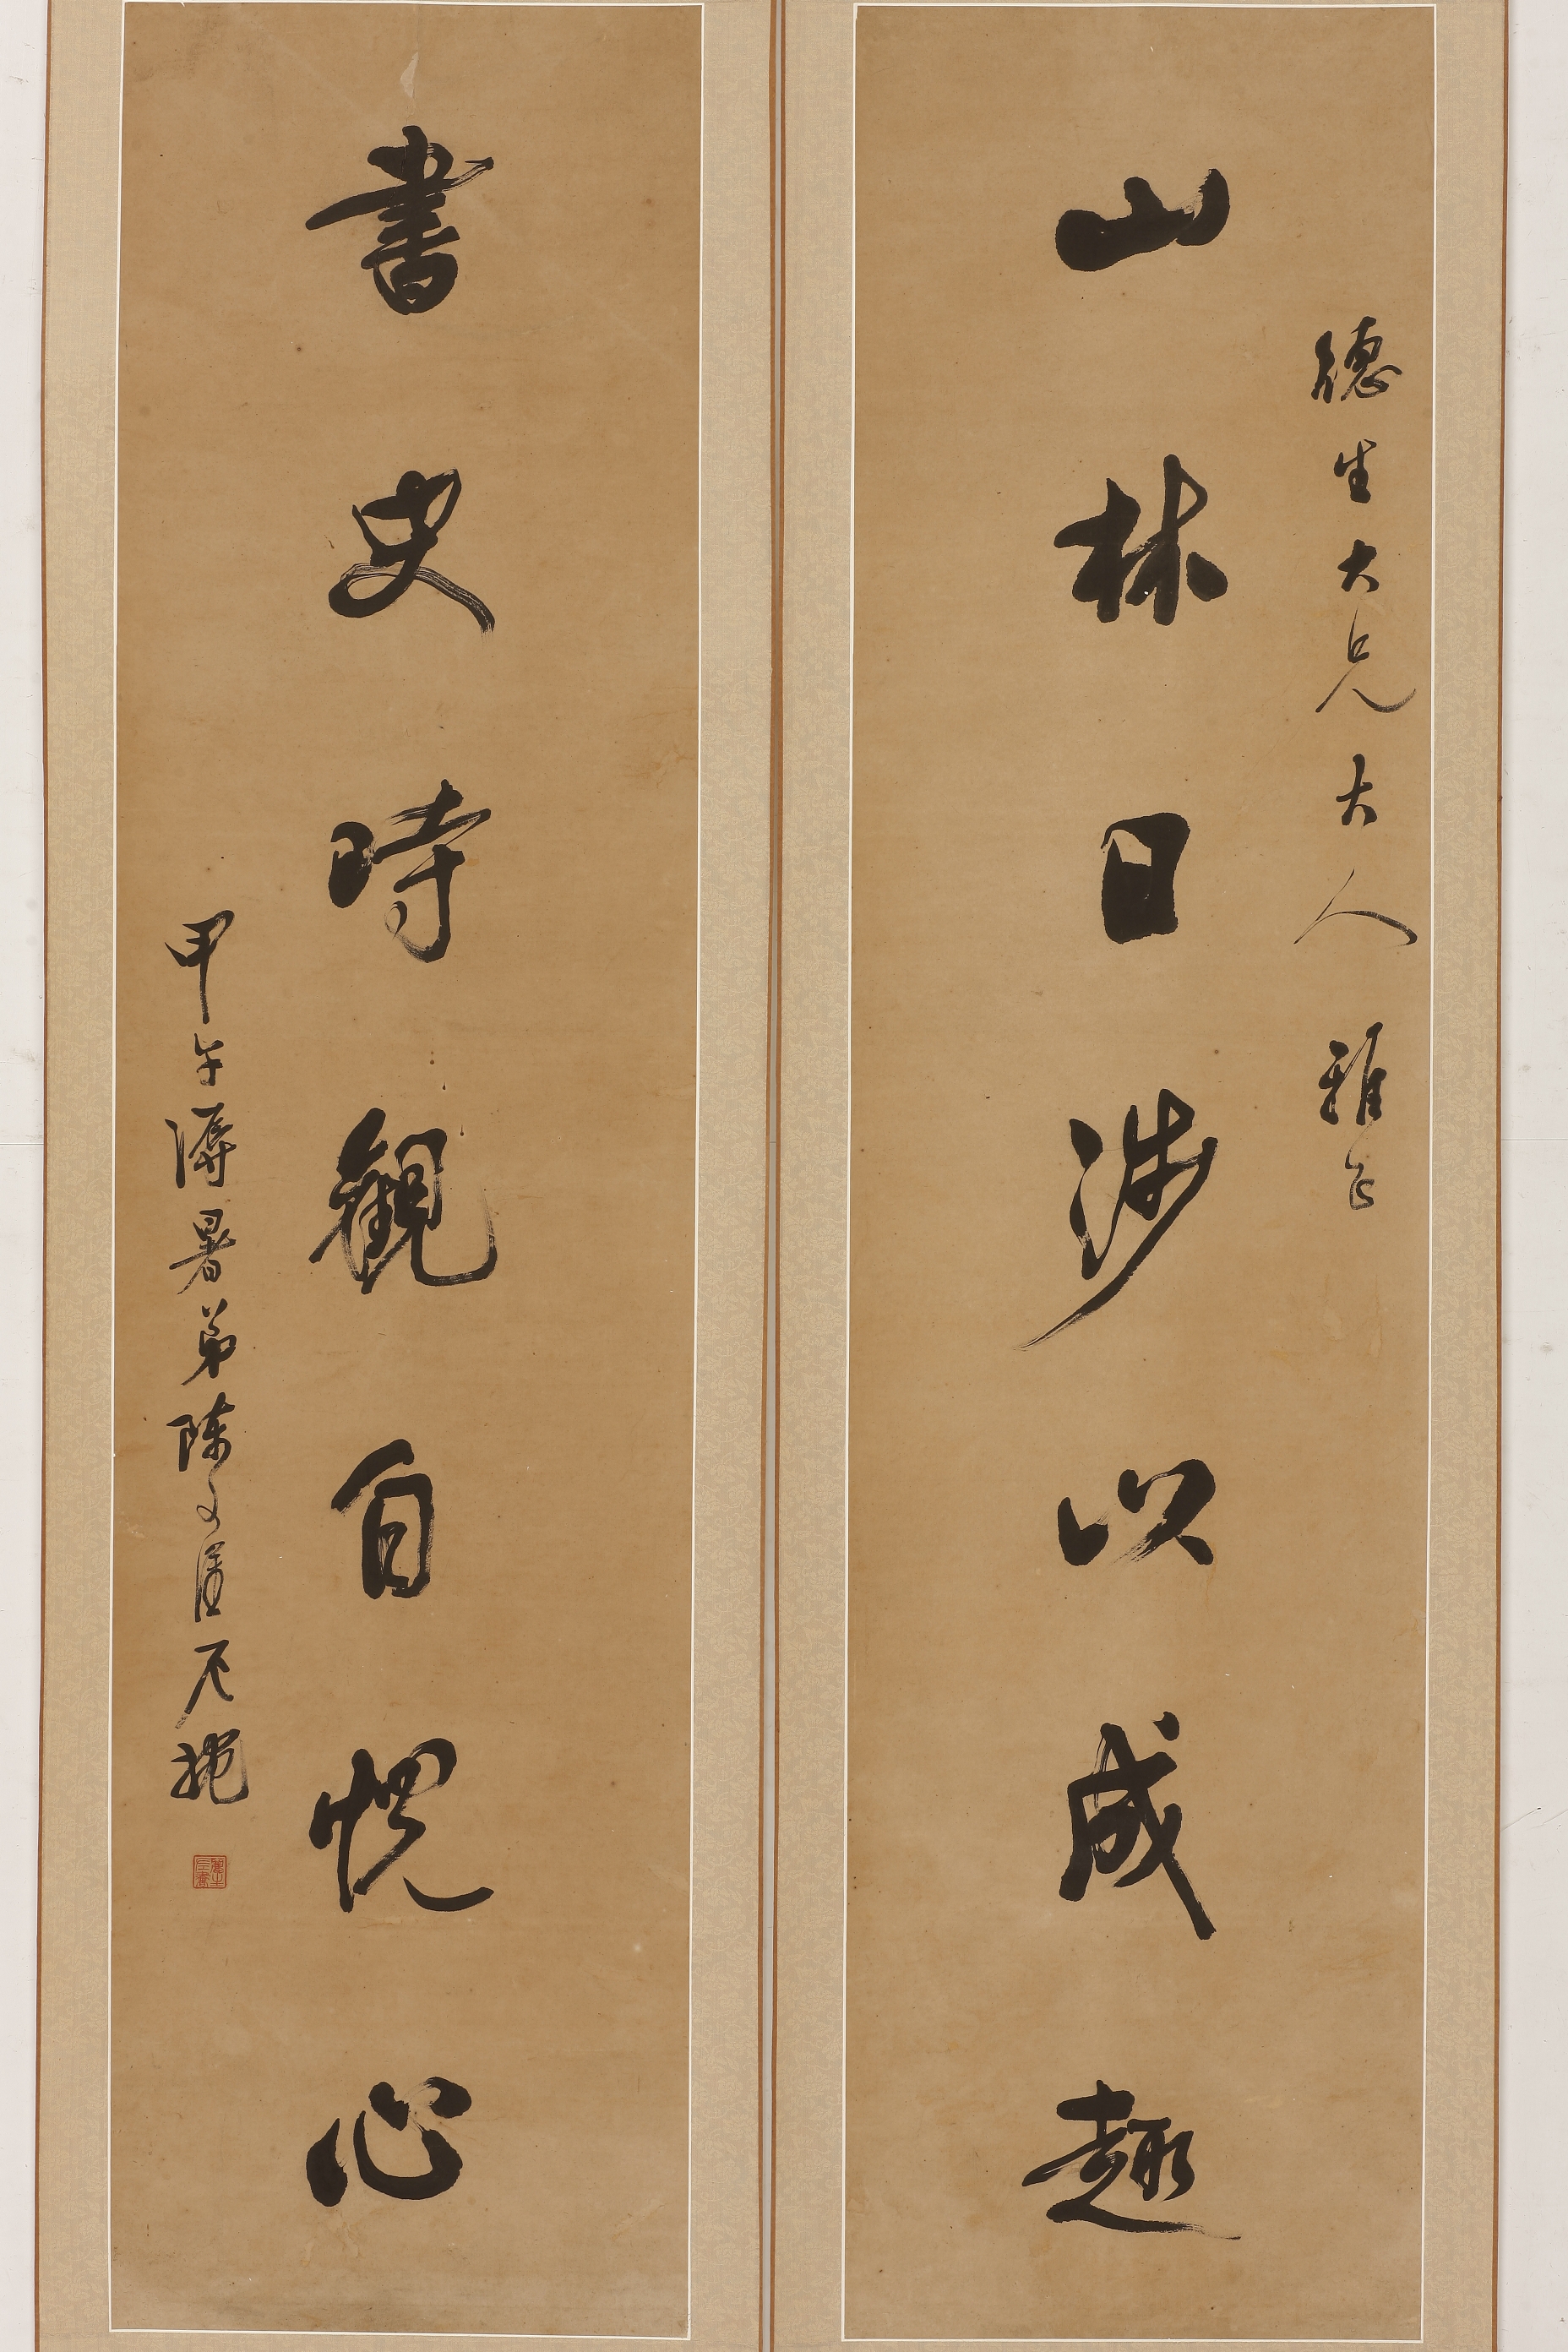 德生大兄大人雅正
山林日涉以成趣
書史時觀自悅心
甲午溽暑弟陳